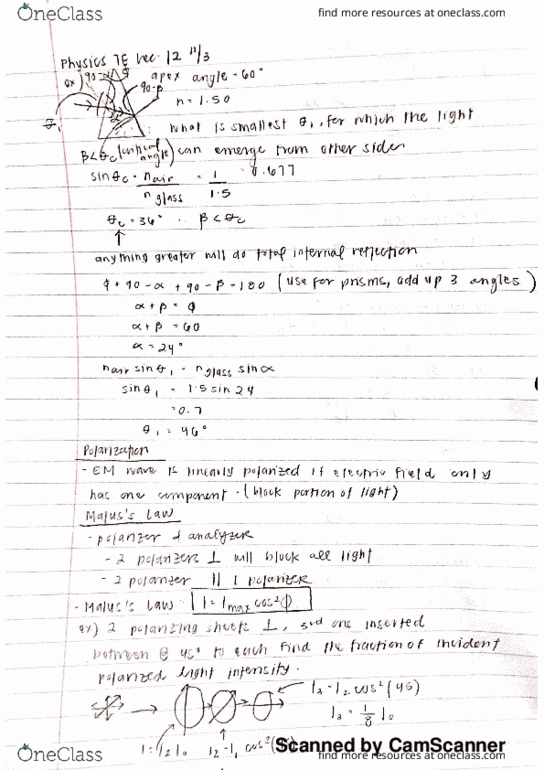 OneClass
find more resources at oneclass.com
Physics 7E lec. 12 11/3
ex) 90-α ϕ apex angle - 60°
90-β
n = 1.50
θ₁
what is smallest θ₁, for which the light
β<θc (critical angle) can emerge from other side
sin θc = n air / n glass = 1 / 1.5 = 0.677
θc = 36° ∴ β < θc
↑
anything greater will do total internal reflection
ϕ + 90 - α + 90 - β = 180 (use for prisms, add up 3 angles)
α + β = ϕ
α + β = 60
α = 24°
nair sin θ₁ = nglass sin α
sin θ₁ = 1.5 sin 24
= 0.7
θ₁ = 46°
Polarization
- EM wave is linearly polarized if electric field only
has one component. (block portion of light)
Malus's Law
- polarizer & analyzer
- 2 polarizers ⊥ will block all light
- 2 polarizer || 1 polarizer
- Malus's Law I = Imax cos²ϕ
ex) 2 polarizing sheets ⊥, 3rd one inserted
between @ 45° to each find the fraction of incident
polarized light intensity.
I₃ = I₂ cos² (45)
I₃ = 1/8 I₀
I₁ = 1/2 I₀ I₂ = I₁ cos²
Scanned by CamScanner
OneClass
find more resources at oneclass.com